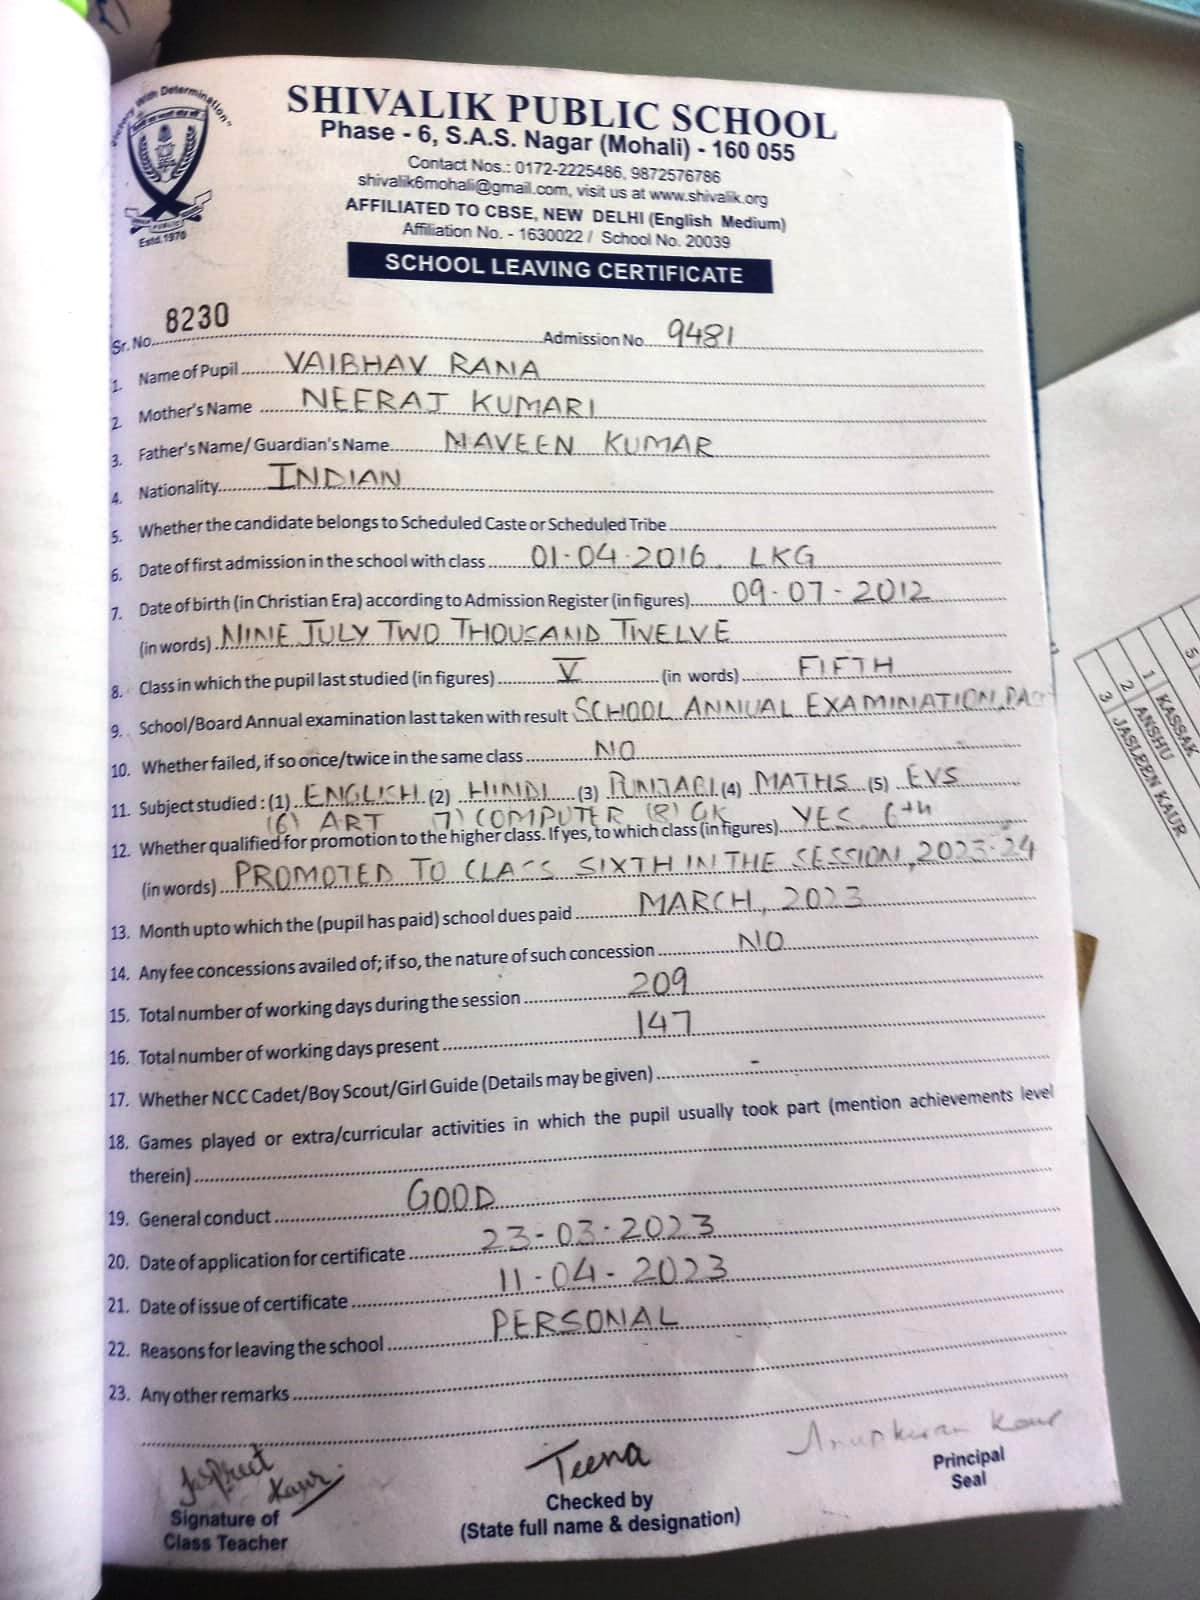 "Victory With Determination"
Estd.1970
SHIVALIK PUBLIC SCHOOL
Phase - 6, S.A.S. Nagar (Mohali) - 160 055
Contact Nos.: 0172-2225486, 9872576786
shivalik6mohali@gmail.com, visit us at www.shivalik.org
AFFILIATED TO CBSE, NEW DELHI (English Medium)
Affiliation No. - 1630022 / School No. 20039
SCHOOL LEAVING CERTIFICATE
Sr. No. 8230 Admission No. 9481
1. Name of Pupil VAIBHAV RANA
2. Mother's Name NEERAJ KUMARI
3. Father's Name/ Guardian's Name NAVEEN KUMAR
4. Nationality INDIAN
5. Whether the candidate belongs to Scheduled Caste or Scheduled Tribe
6. Date of first admission in the school with class 01-04-2016, LKG
7. Date of birth (in Christian Era) according to Admission Register (in figures) 09-07-2012
(in words) NINE JULY TWO THOUSAND TWELVE
8. Class in which the pupil last studied (in figures) V (in words) FIFTH
9. School/Board Annual examination last taken with result SCHOOL ANNUAL EXAMINATION,
10. Whether failed, if so once/twice in the same class NO
11. Subject studied : (1) ENGLISH (2) HINDI (3) PUNJABI (4) MATHS (5) EVS
(6) ART 7) COMPUTER (8) GK
12. Whether qualified for promotion to the higher class. If yes, to which class (in figures) YES 6th
(in words) PROMOTED TO CLASS SIXTH IN THE SESSION, 2023-24
13. Month upto which the (pupil has paid) school dues paid MARCH, 2023
14. Any fee concessions availed of; if so, the nature of such concession NO
15. Total number of working days during the session 209
16. Total number of working days present 147
17. Whether NCC Cadet/Boy Scout/Girl Guide (Details may be given) -
18. Games played or extra/curricular activities in which the pupil usually took part (mention achievements level
therein)
19. General conduct GOOD
20. Date of application for certificate 23-03-2023
21. Date of issue of certificate 11-04-2023
22. Reasons for leaving the school PERSONAL
23. Any other remarks
Jaspreet Kaur
Signature of
Class Teacher
Teena
Checked by
(State full name & designation)
Anupkiran Kaur
Principal
Seal
1 KASSAK
2 ANSHU
3 JASLEEN KAUR
5